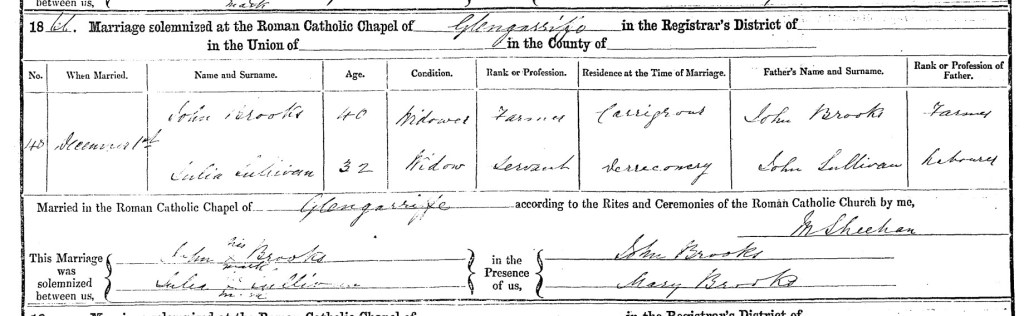 between us,
mark
18 Marriage solemnized at the Roman Catholic Chapel of Glengarriffe in the Registrar's District of
in the Union of in the County of
No. When Married. Name and Surname. Age. Condition. Rank or Profession. Residence at the Time of Marriage. Father's Name and Surname. Rank or Profession of Father.
John Brooks 40 Widower Farmer Carrigrour John Brooks Farmer
December 1st
Julia Sullivan 32 Widow Servant John Sullivan Labourer
Married in the Roman Catholic Chapel of Glengarriffe according to the Rites and Ceremonies of the Roman Catholic Church by me,
M Sheehan
This Marriage was solemnized between us,
John his mark Brooks
Julia Sullivan
in the Presence of us,
John Brooks
Mary Brooks